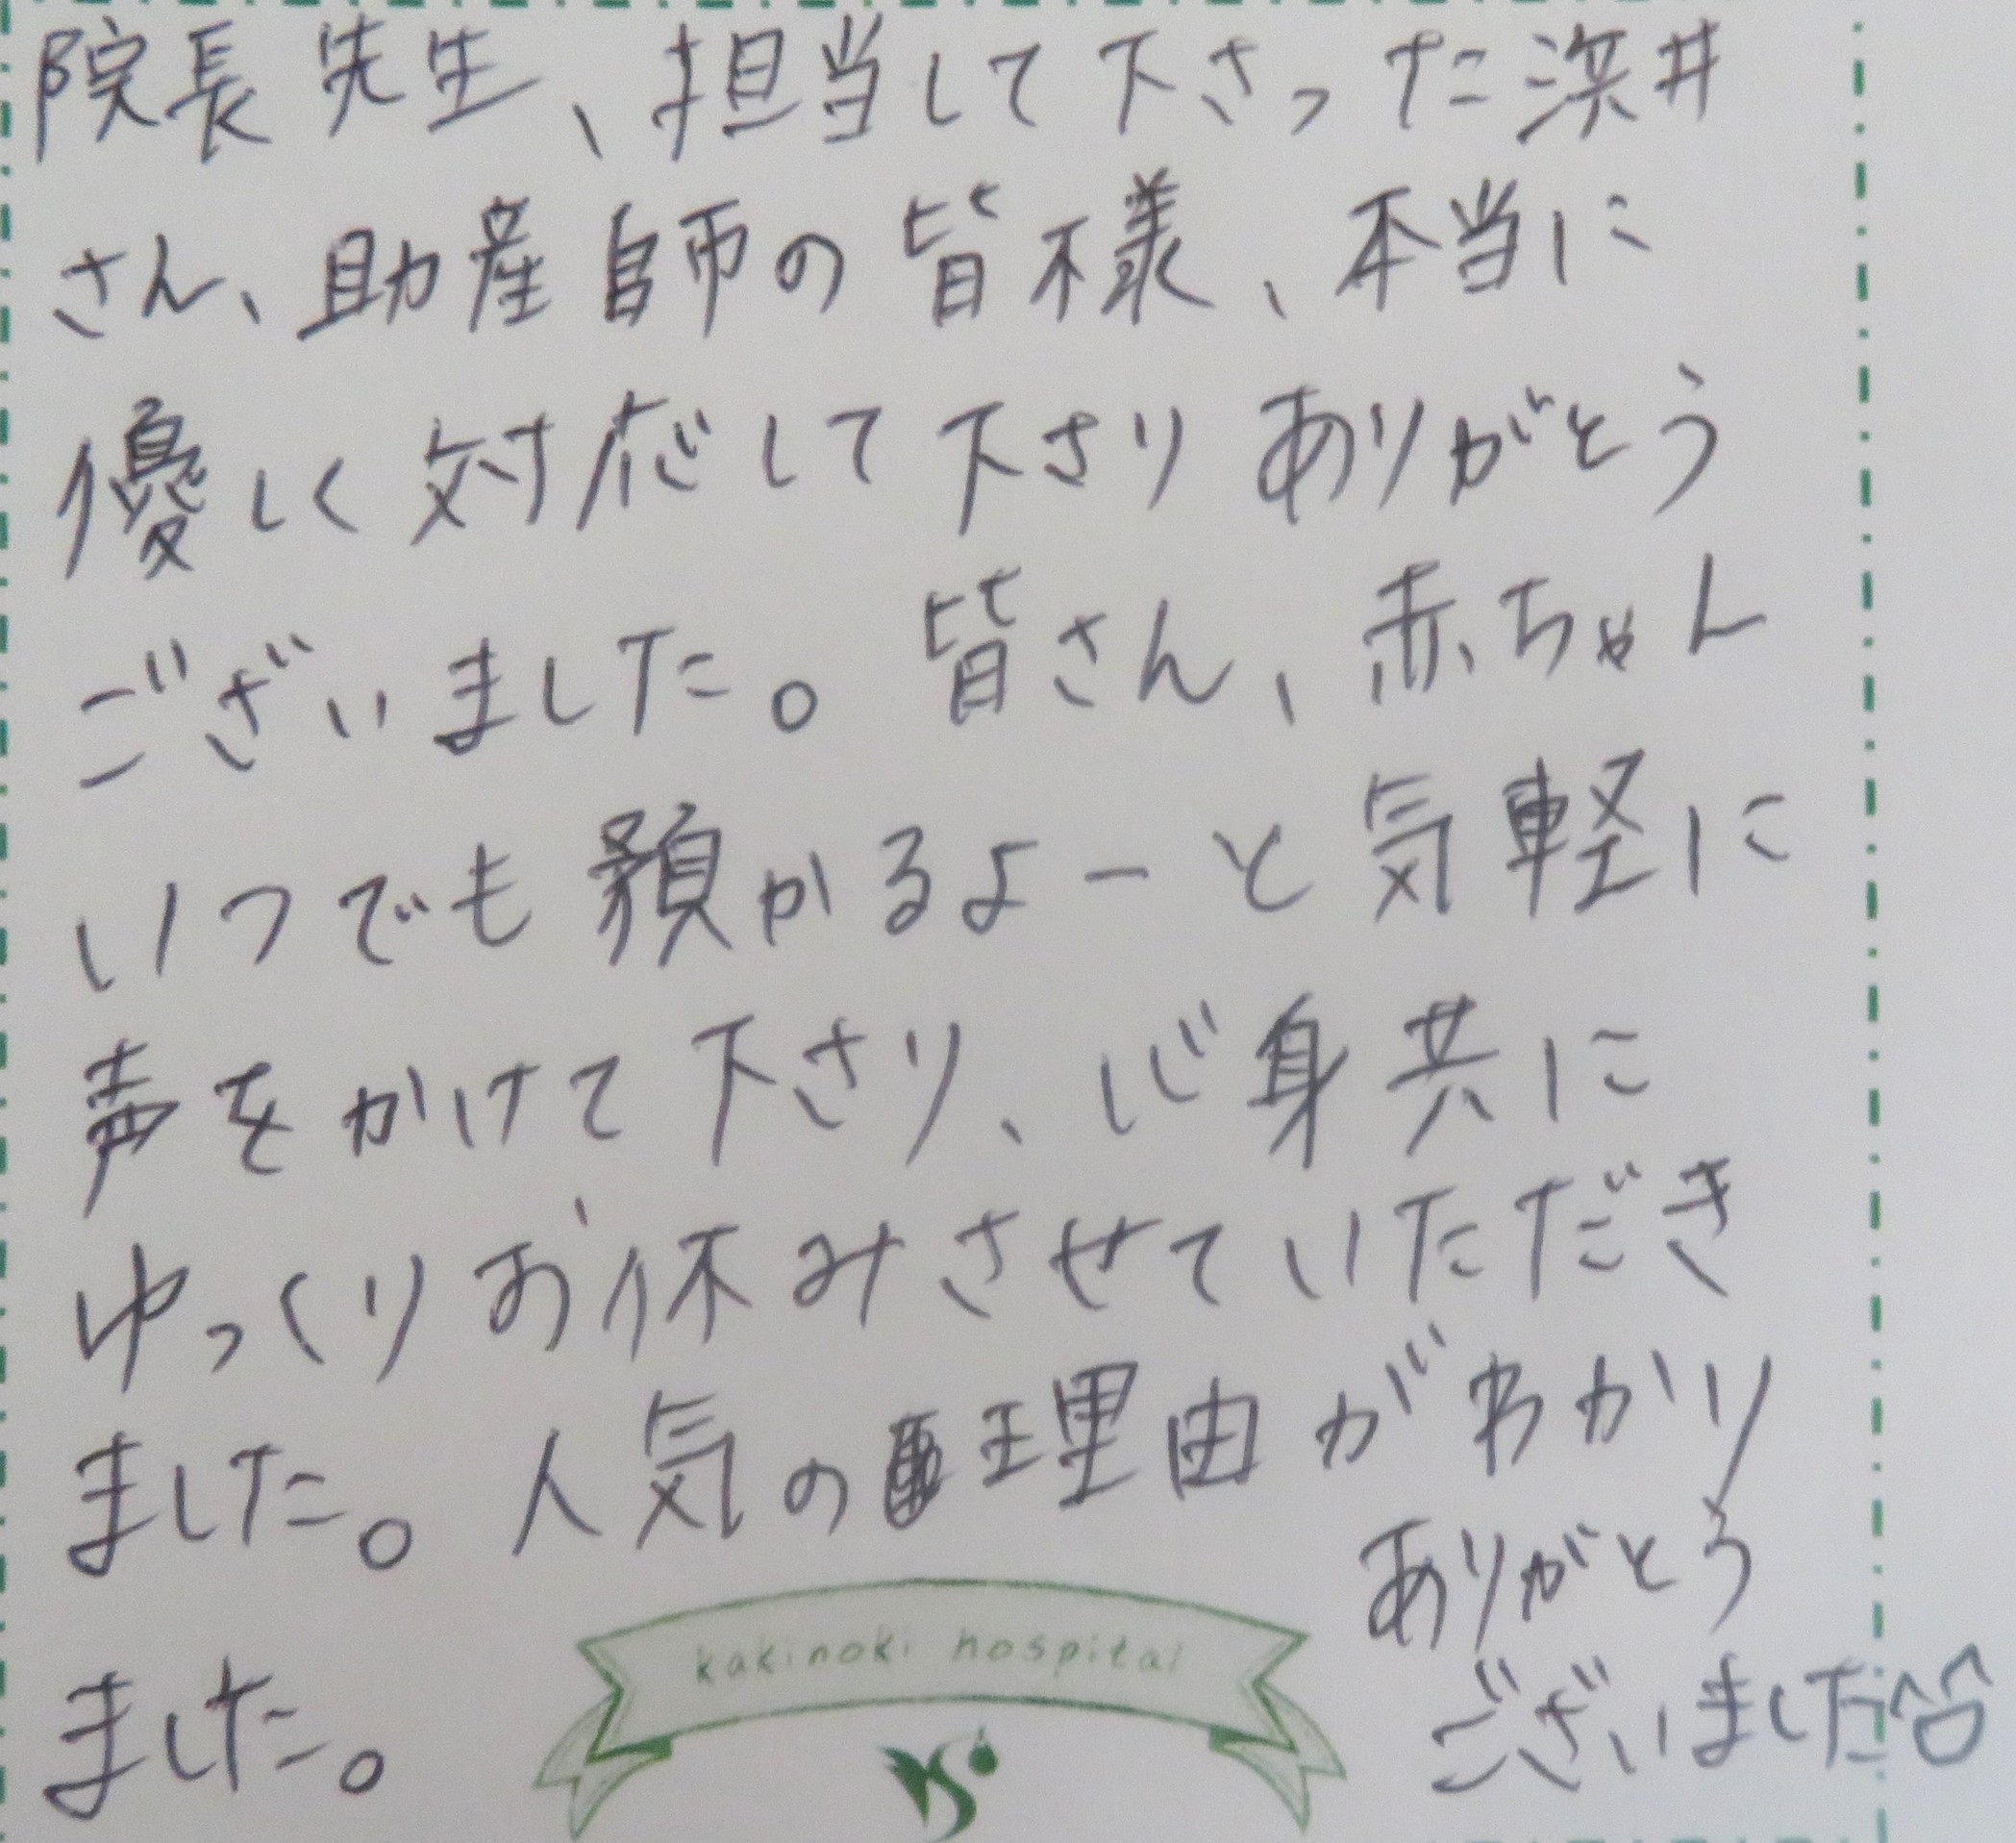 院長先生、担当して下さった浜井
さん、助産師の皆様、本当に
優しく対応して下さりありがとう
ございました。皆さん、赤ちゃん
いつでも預かるよーと気軽に
声をかけて下さり、心身共に
ゆっくりお休みさせていただき
ました。人気の理由がわかり
ました。
kakinoki hospital
ありがとう
ございました